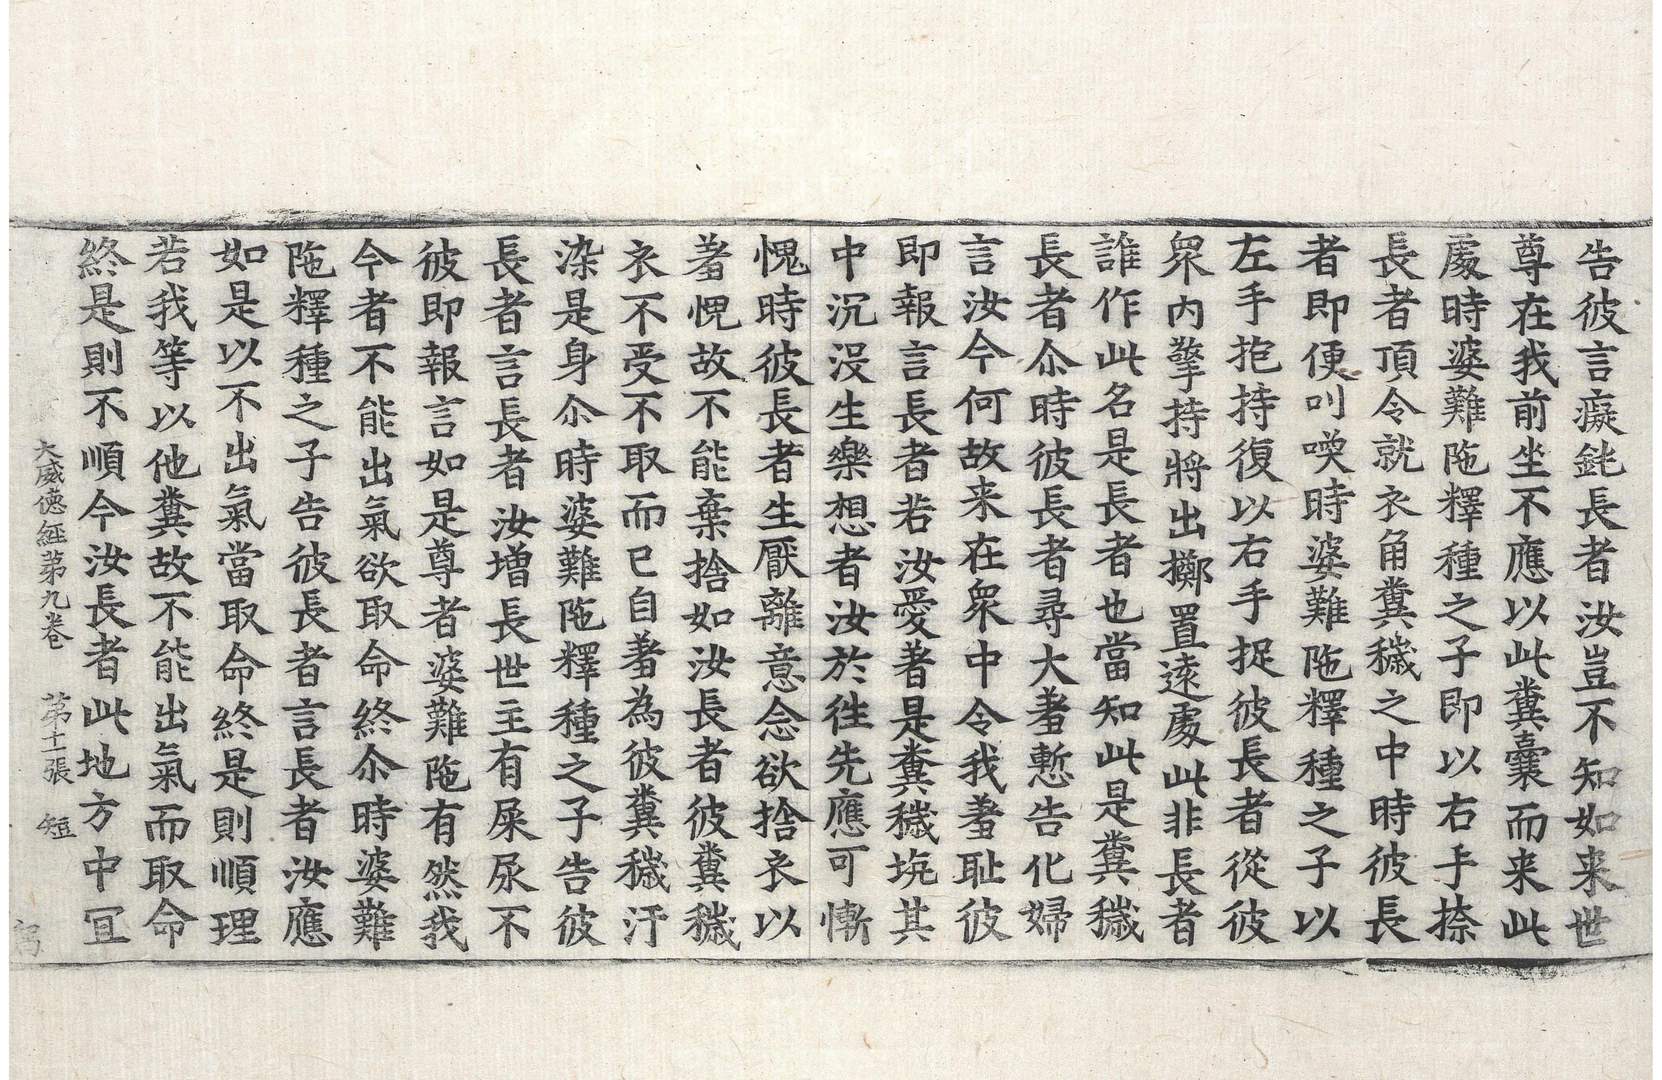 告彼言癡鈍長者汝豈不知如来世
尊在我前坐不應以此糞囊而来此
處時婆難陁釋種之子即以右手捺
長者頂令就衣角糞穢之中時彼長
者即便叫喚時婆難陁釋種之子以
左手抱持復以右手捉彼長者從彼
衆內擎持將出擲置遠處此非長者
誰作此名是長者也當知此是糞穢
長者尒時彼長者尋大羞慙告化婦
言汝今何故来在衆中令我羞耻彼
即報言長者若汝愛著是糞穢坑其
中沉沒生樂想者汝於徃先應可慚
愧時彼長者生厭離意念欲捨衣以
羞愧故不能棄捨如汝長者彼糞穢
衣不受不取而已自羞為彼糞穢汙
染是身尒時婆難陁釋種之子告彼
長者言長者汝增長世主有屎尿不
彼即報言如是尊者婆難陁有然我
今者不能出氣欲取命終尒時婆難
陁釋種之子告彼長者言長者汝應
如是以不出氣當取命終是則順理
若我等以他糞故不能出氣而取命
終是則不順今汝長者此地方中冝
大威德經第九卷 第十一張 短